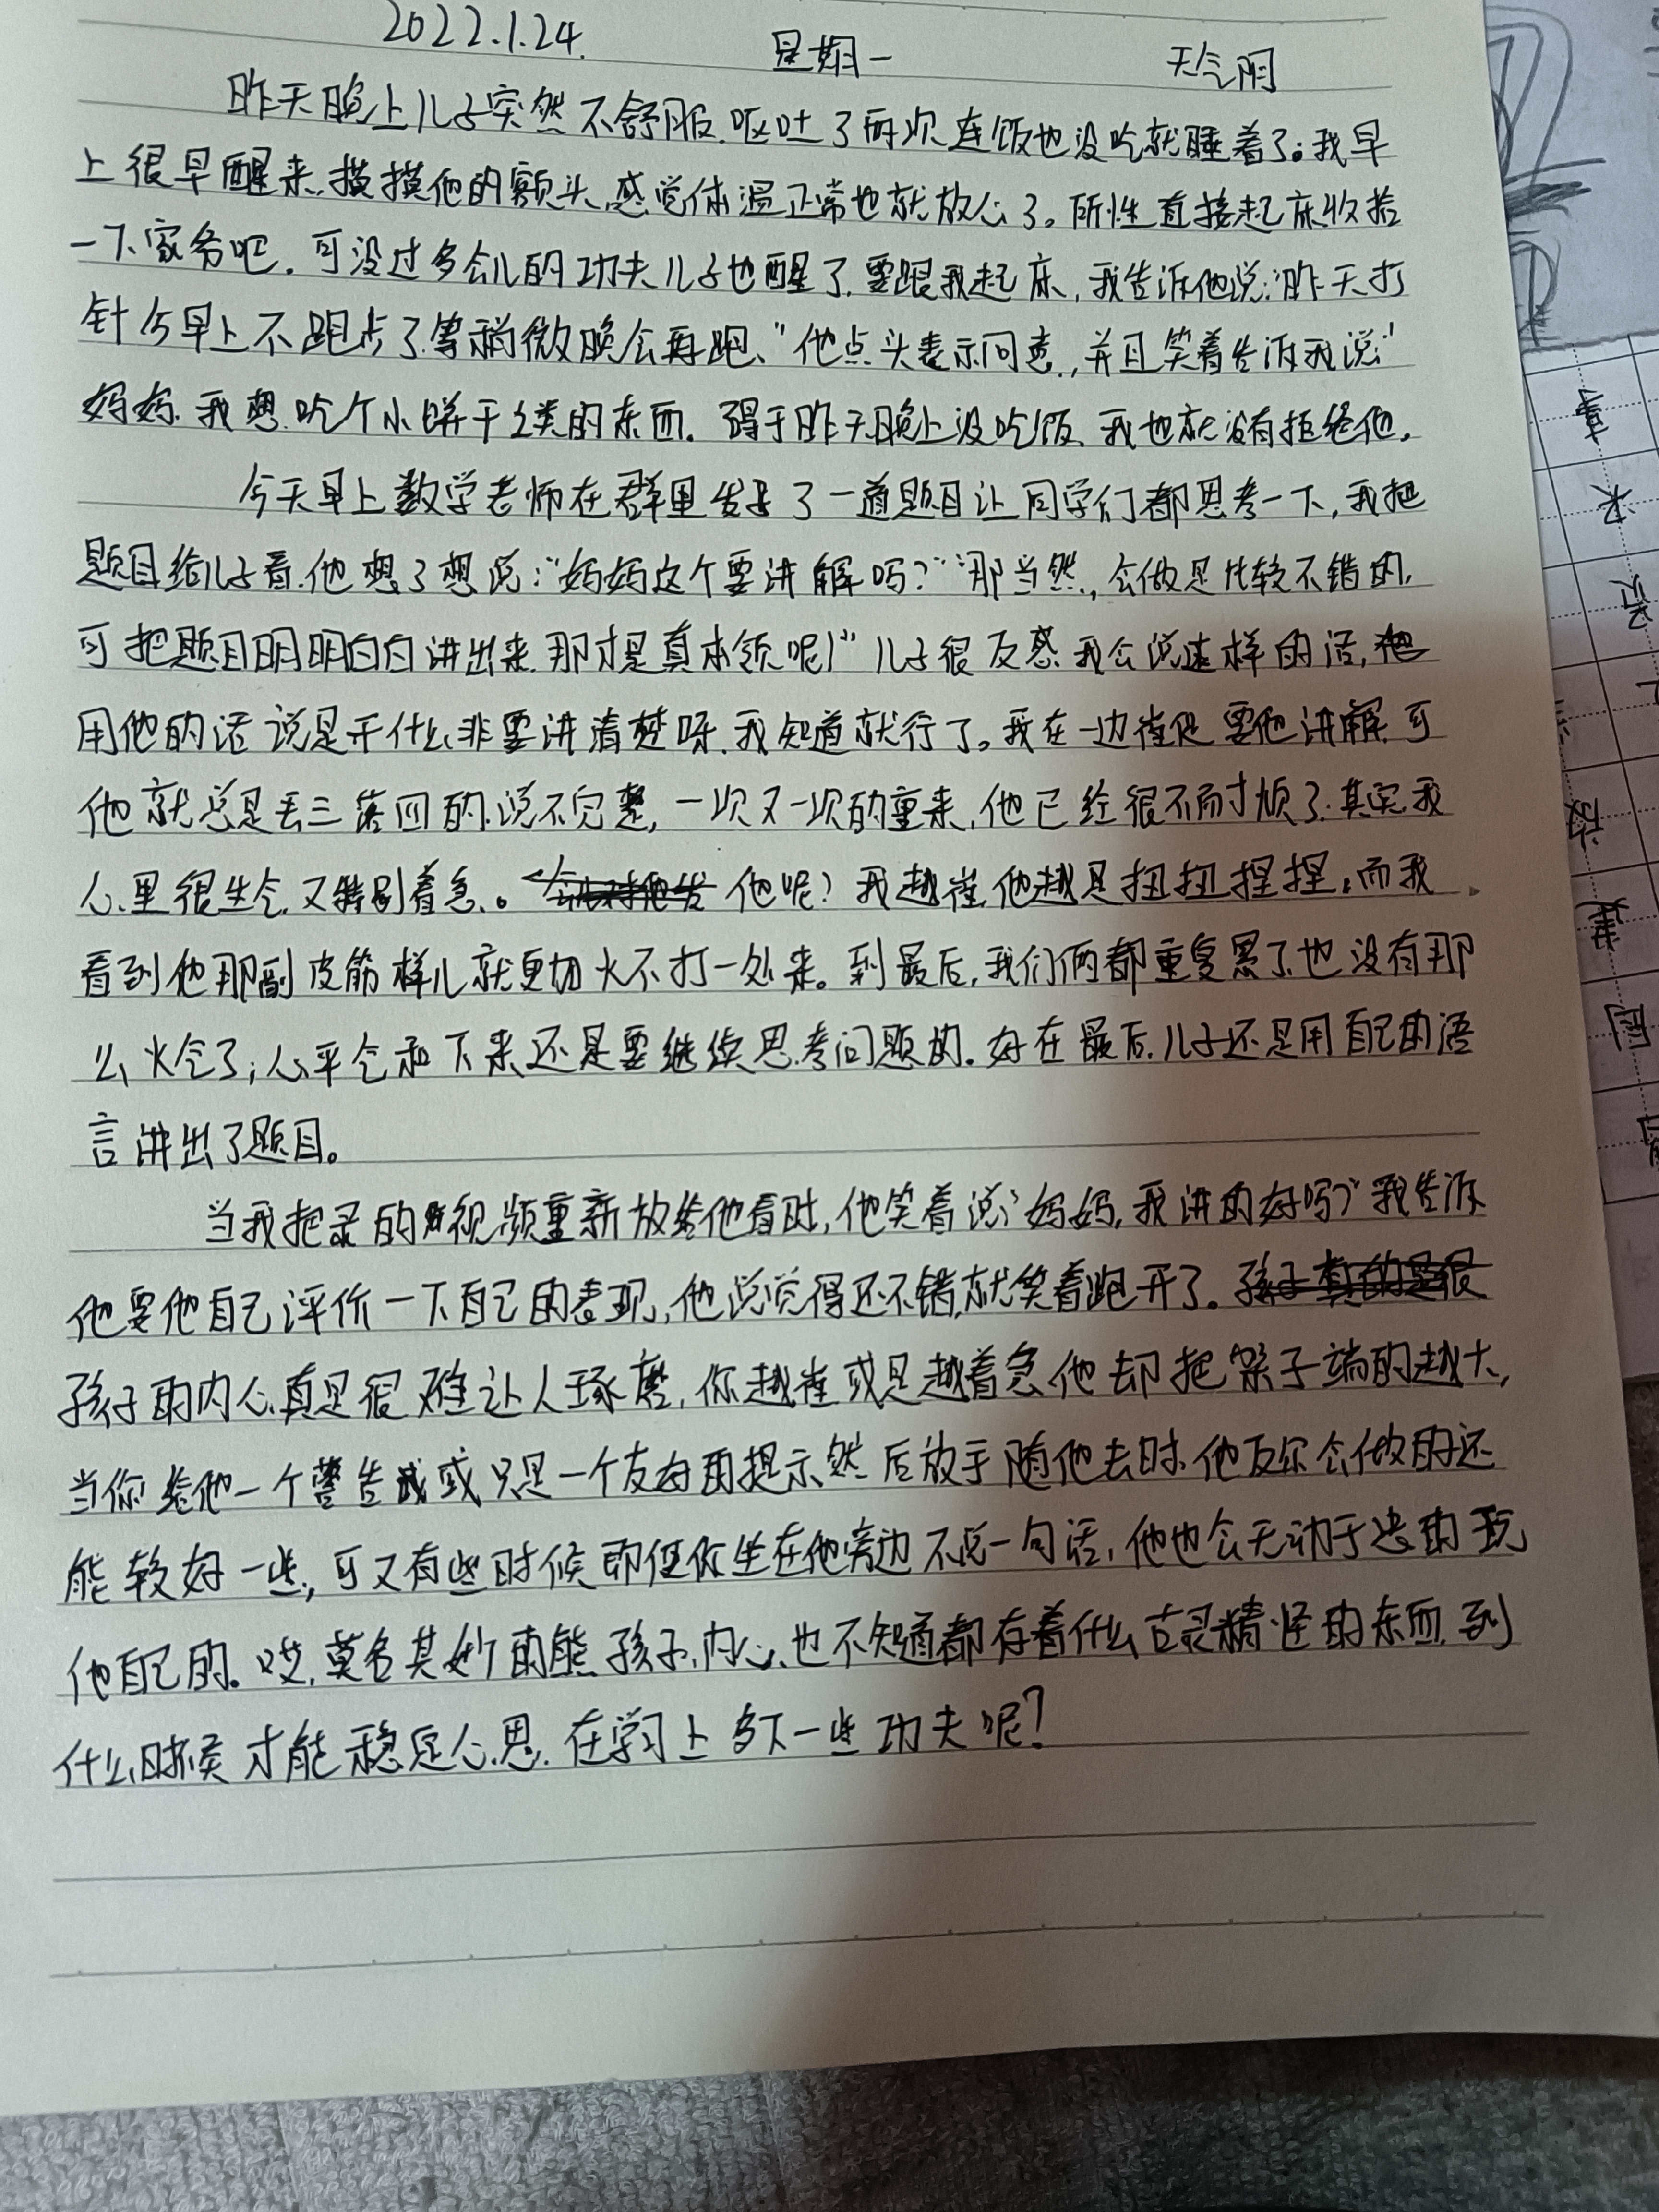 2022.1.24. 星期一 天气阴
昨天晚上儿子突然不舒服.呕吐了两次.连饭也没吃就睡着了。我早
上很早醒来.摸摸他的额头.感觉体温正常也就放心了。所性直接起床收拾
一下家务吧.可没过多会儿的功夫儿子也醒了.要跟我起床,我告诉他说:"昨天打
针今早上不跑步了.等稍微晚会再跑、"他点头表示同意,并且笑着告诉我说:"
妈妈.我想吃个小饼干之类的东西.碍于昨天晚上没吃饭、我也就没有拒绝他.
今天早上数学老师在群里发了一道题目让同学们都思考一下,我把
题目给儿子看.他想了想说:"妈妈这个要讲解吗?""那当然,会做是比较不错的,
可把题目明明白白讲出来.那才是真本领呢!"儿子很反感我会说这样的话,
用他的话说是干什么非要讲清楚呀.我知道就行了。我在一边催他要他讲解.可
他就总是丢三落四的.说不完整,一次又一次的重来,他已经很不耐烦了.其实我
心里很生气.又特别着急。他呢?我越催.他越是扭扭捏捏.而我
看到他那副皮筋样儿就更加火不打一处来。到最后,我们俩都重复累了.也没有那
么火气了;心平气和下来还是要继续思考问题的.好在最后.儿子还是用自己的语
言讲出了题目。
当我把录的视频重新放给他看时,他笑着说:"妈妈,我讲的好吗?"我告诉
他要他自己评价一下自己的表现,他说觉得还不错.就笑着跑开了.
孩子的内心真是很难让人琢磨,你越催或是越着急他却把架子端的越大,
当你给他一个警告或只是一个友好的提示然后放手随他去时.他反尔会做的还
能较好一些,可又有些时候即便你坐在他旁边不说一句话,他也会无动于衷的玩
他自己的。哎,莫名其妙的熊孩子.内心、也不知道都存着什么古灵精怪的东西.到
什么时候才能稳定心思.在学习上多下一些功夫呢?